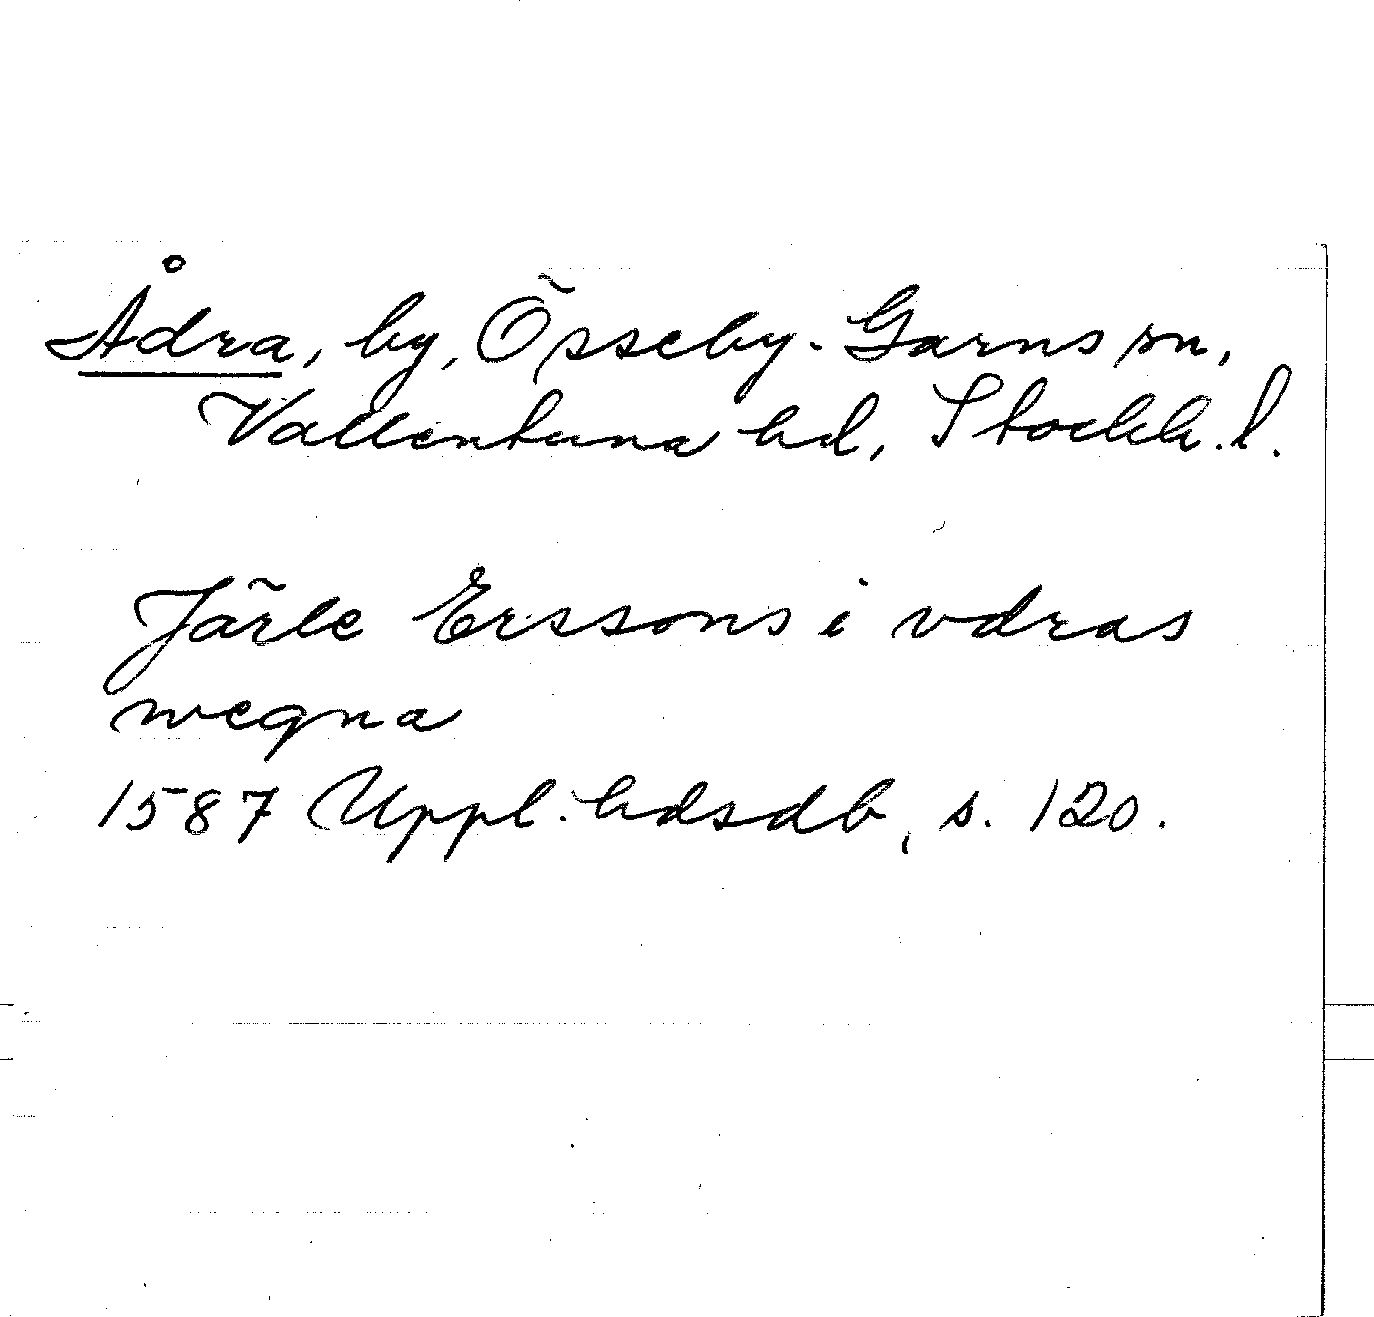 Ådra, by, Össeby-Garns sn,
Vallentuna hd, Stockh. l.
Järle Erssons i vdras
wegna
1587 Uppl. hdsdb, s. 120.